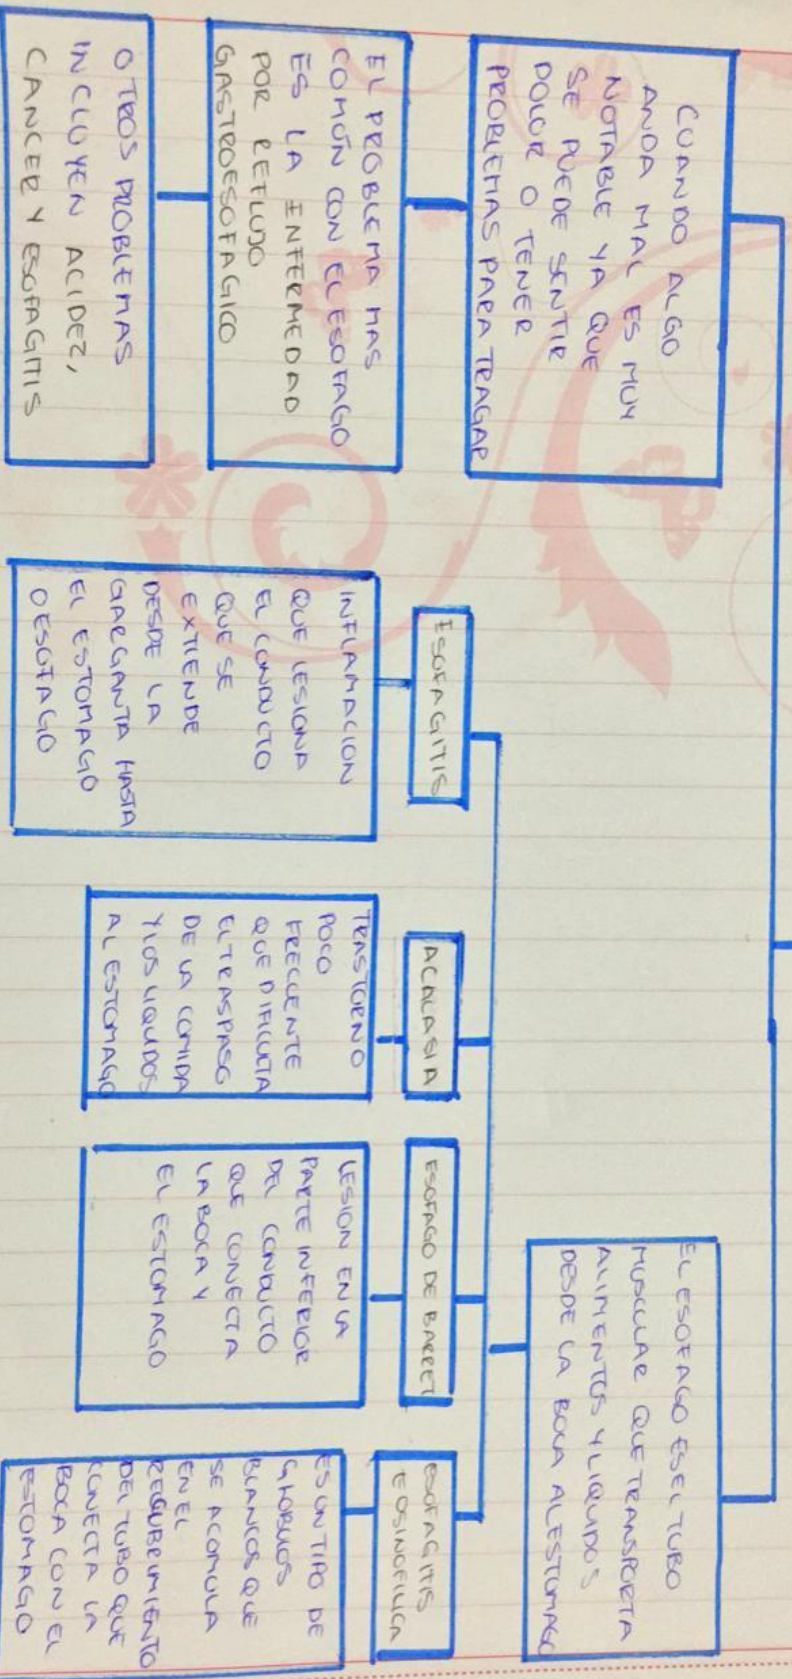 CUANDO ALGO
ANDA MAL ES MUY
NOTABLE YA QUE
SE PUEDE SENTIR
DOLOR O TENER
PROBLEMAS PARA TRAGAR
EL PROBLEMA MAS
COMÚN CON EL ESOFAGO
ES LA INFERMEDAD
POR REFLUJO
GASTROESOFAGICO
OTROS PROBLEMAS
INCLUYEN ACIDEZ,
CANCER Y ESOFAGITIS
EL ESOFAGO ES EL TUBO
MUSCULAR QUE TRANSPORTA
ALIMENTOS Y LIQUIDOS
DESDE LA BOCA AL ESTOMAGO
ESOFAGITIS
INFLAMACION
QUE LESIONA
EL CONDUCTO
QUE SE
EXTIENDE
DESDE LA
GARGANTA HASTA
EL ESTOMAGO
O ESOFAGO
ACALASIA
TRASTORNO
POCO
FRECUENTE
QUE DIFICULTA
EL TRASPASO
DE LA COMIDA
Y LOS LIQUIDOS
AL ESTOMAGO
ESOFAGO DE BARRET
LESION EN LA
PARTE INFERIOR
DEL CONDUCTO
QUE CONECTA
LA BOCA Y
EL ESTOMAGO
ESOFAGITIS
EOSINOFILICA
ES UN TIPO DE
GLOBULOS
BLANCOS QUE
SE ACOMULA
EN EL
RECUBRIMIENTO
DEL TUBO QUE
CONECTA LA
BOCA CON EL
ESTOMAGO